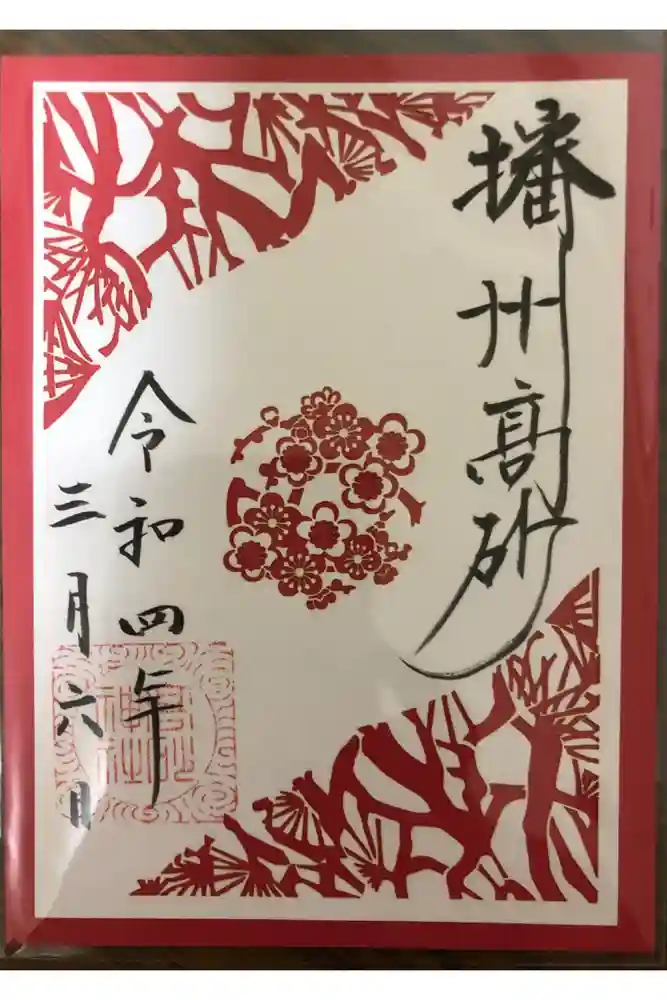 播州高砂
令和四年
三月六日
神社